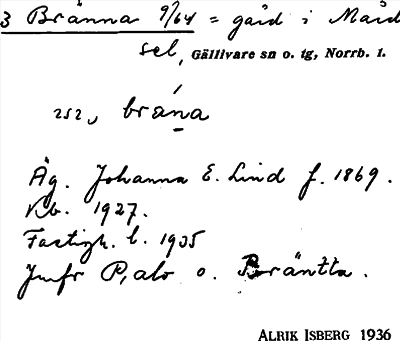 3 Bränna 9/64 = gård i Mård
sel, Gällivare sn o. tg, Norrb. l.
252, bräna
Äg. Johanna E. Lind f. 1869.
Kb. 1927.
Fastigh. l. 1935
Jmfr P, alo o. Bräntta.
ALRIK ISBERG 1936